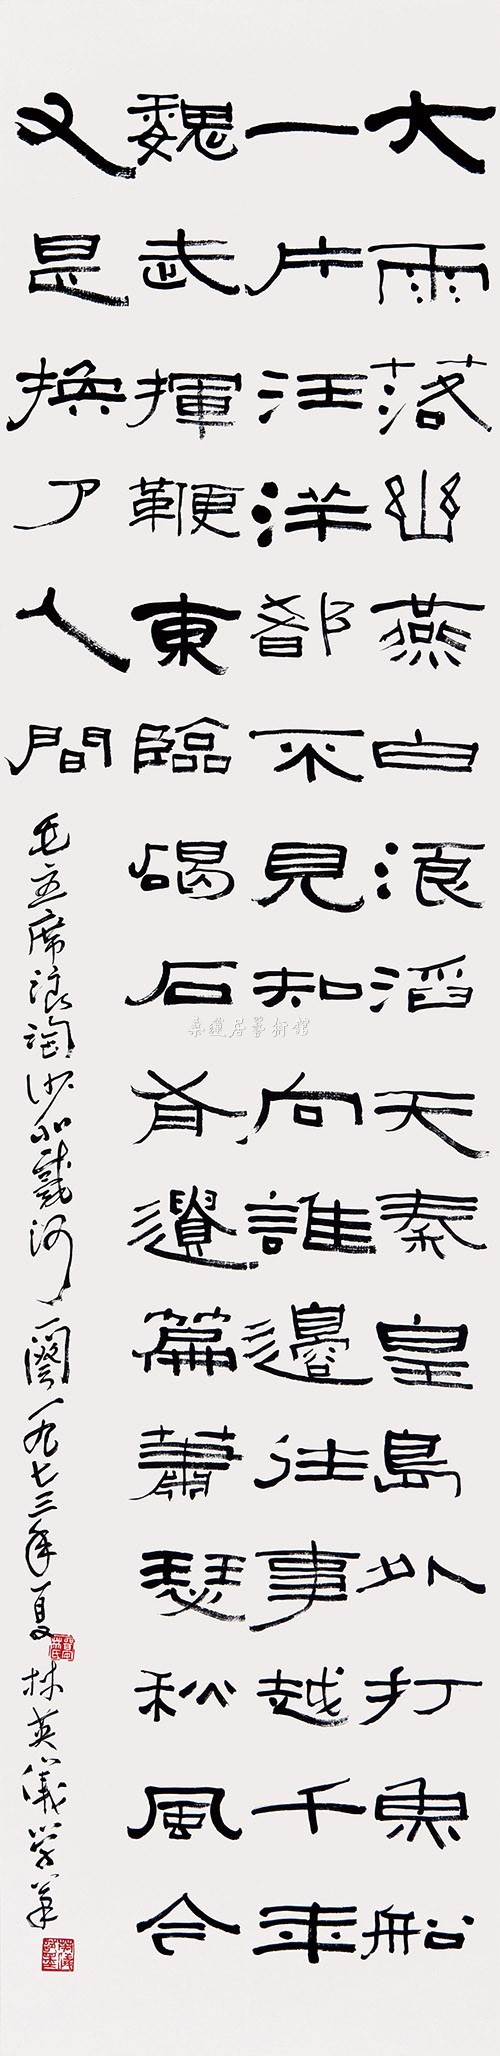 大雨落幽燕白浪滔天秦皇島外打魚船
一片汪洋都不見知向誰邊往事越千年
魏武揮鞭東臨碣石有遺篇蕭瑟秋風今
又是換了人間
毛主席浪淘沙北戴河一闋一九七三年夏林英儀学筆
桑蓮居藝術館